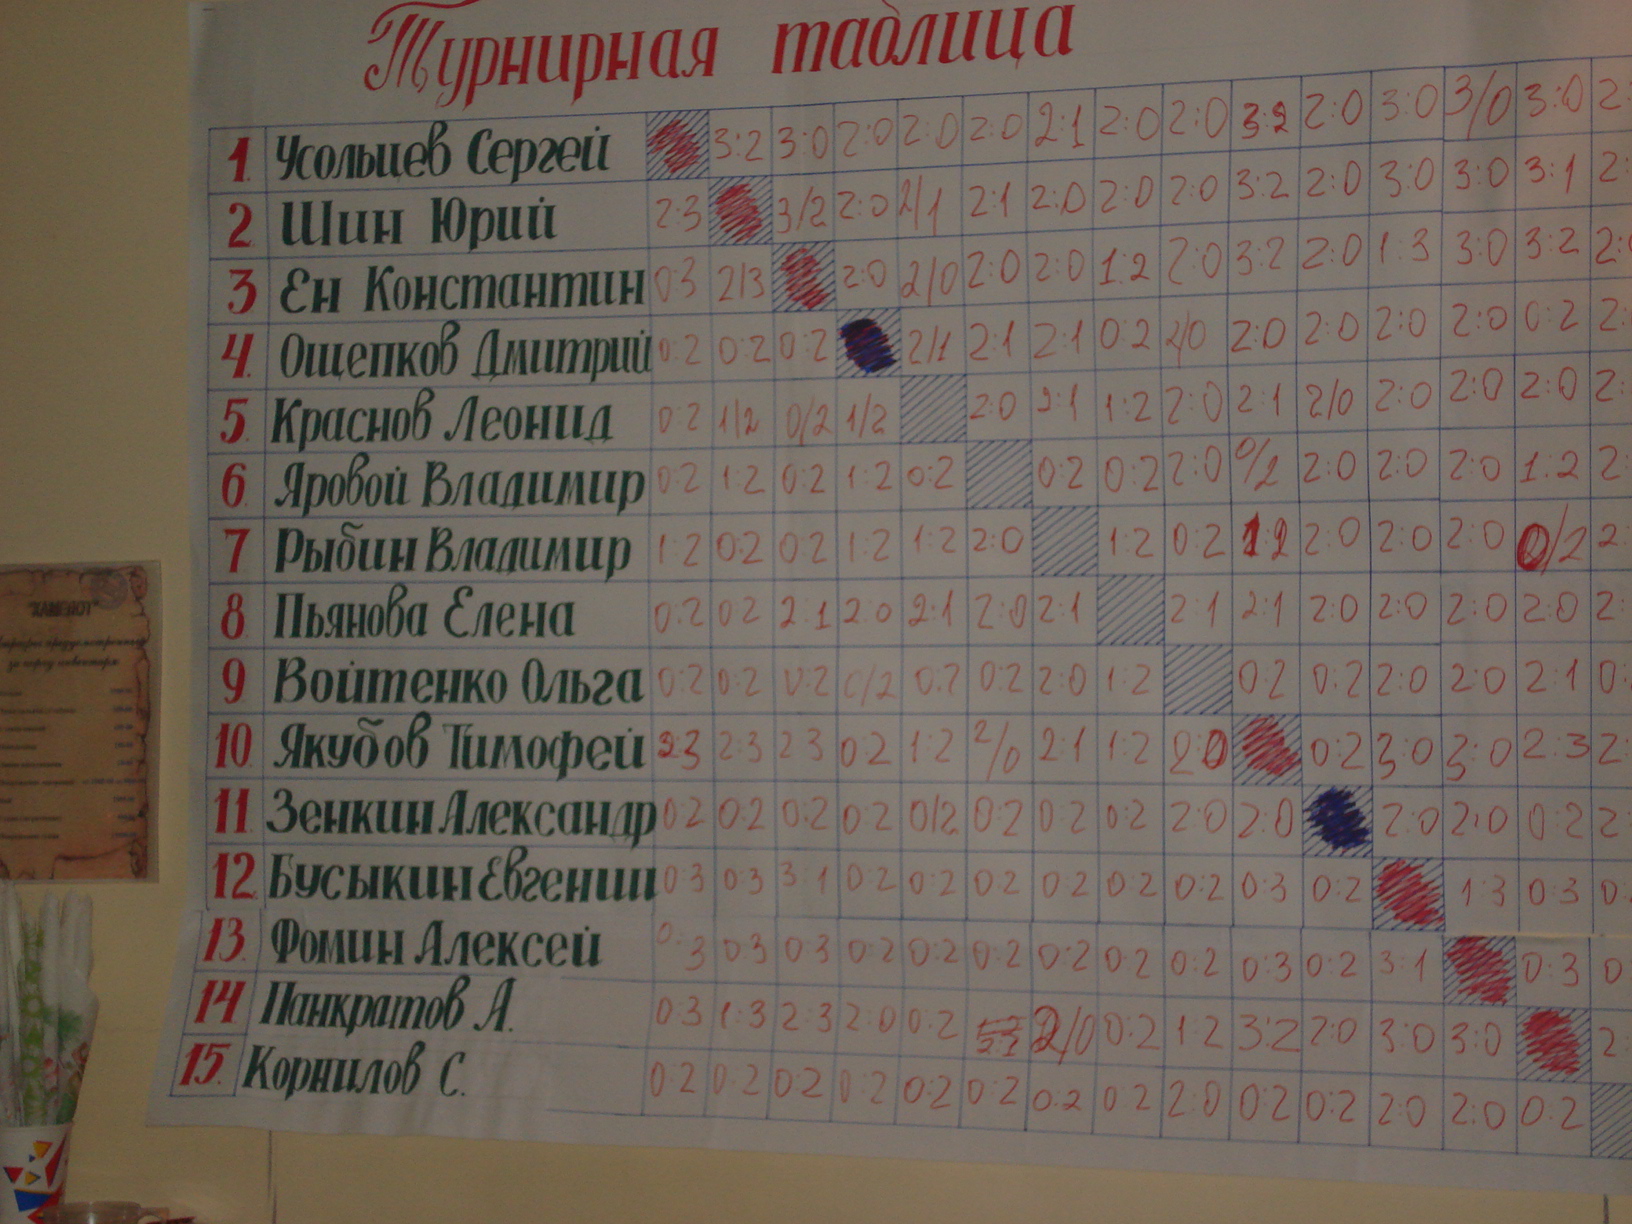 Турнирная таблица
1. Усольцев Сергей 3:2 3:0 2:0 2:0 2:0 2:1 2:0 2:0 3:2 2:0 3:0 3/0 3:0 2:
2. Шин Юрий 2:3 3/2 2:0 2/1 2:1 2:0 2:0 2:0 3:2 2:0 3:0 3:0 3:1 2:
3. Ен Константин 0:3 2/3 2:0 2/0 2:0 2:0 1:2 2:0 3:2 2:0 1:3 3:0 3:2 2:
4. Ощепков Дмитрий 0:2 0:2 0:2 2/1 2:1 2:1 0:2 2/0 2:0 2:0 2:0 2:0 0:2 2:
5. Краснов Леонид 0:2 1/2 0/2 1/2 2:0 2:1 1:2 2:0 2:1 2/0 2:0 2:0 2:0 2:
6. Яровой Владимир 0:2 1:2 0:2 1:2 0:2 0:2 0:2 2:0 0/2 2:0 2:0 2:0 1:2 2:
7. Рыбин Владимир 1:2 0:2 0:2 1:2 1:2 2:0 1:2 0:2 1:2 2:0 2:0 2:0 0/2 2:
8. Пьянова Елена 0:2 0:2 2:1 2:0 2:1 2:0 2:1 2:1 2:1 2:0 2:0 2:0 2:0 2:
9. Войтенко Ольга 0:2 0:2 0:2 0/2 0:2 0:2 2:0 1:2 0:2 0:2 2:0 2:0 2:1 0:
10. Якубов Тимофей 2:3 2:3 2:3 0:2 1:2 2/0 2:1 1:2 2:0 0:2 3:0 3:0 2:3 2:
11. Зенкин Александр 0:2 0:2 0:2 0:2 0/2 0:2 0:2 0:2 2:0 2:0 2:0 2:0 0:2 2:
12. Бусыкин Евгений 0:3 0:3 3:1 0:2 0:2 0:2 0:2 0:2 0:2 0:3 0:2 1:3 0:3 0:
13. Фомин Алексей 0:3 0:3 0:3 0:2 0:2 0:2 0:2 0:2 0:2 0:3 0:2 3:1 0:3 0
14. Панкратов А. 0:3 1:3 2:3 2:0 0:2 2:1 2/0 0:2 1:2 3:2 2:0 3:0 3:0 2:
15. Корнилов С. 0:2 0:2 0:2 0:2 0:2 0:2 0:2 0:2 2:0 0:2 0:2 2:0 2:0 0:2